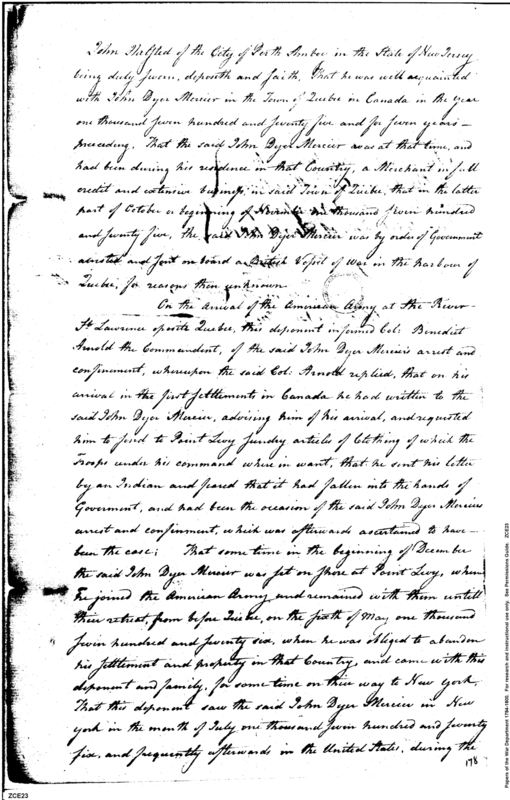 John Thelfled of the City of Perth Amboe in the State of New Jersey
being duly sworn, deposeth and saith, That he was well acquainted
with John Dyer Mercier in the Town of Quebec in Canada in the year
one thousand seven hundred and seventy five and for seven years
preceeding, That the said John Dyer Mercier was at that time, and
had been during his residence in that Country, a Merchant in full
credit and extensive business, in said Town of Quebec, that in the latter
part of October or beginning of November one thousand seven hundred
and seventy five, the said John Dyer Mercier was by order of Government
arrested and sent on board a British Vessel of War in the harbour of
Quebec, for reasons then unknown.
On the Arrival of the American Army at the River
St Lawrence oposite Quebec, this deponent informed Col: Benedict
Arnold the Commandent, of the said John Dyer Mercier's arrest and
confinement, whereupon the said Col: Arnold replied, that on his
arrival in the first Settlements in Canada he had written to the
said John Dyer Mercier, advising him of his arrival, and requested
him to send to Point Levy sundry articles of Clothing of which the
Troops under his command where in want, that he sent his letter
by an Indian and feared that it had fallen into the hands of
Goverment, and had been the occasion of the said John Dyer Merciers
arrest and confinment, which was afterwards ascertained to have
been the case; That some time in the beginning of December
the said John Dyer Mercier was set on shore at Point Levy, when
he joined the American Army and remained with them untill
their retreat, from before Quebec, on the sixth of May one thousand
seven hundred and seventy six, when he was obliged to abandon
his settlement and property in that Country, and came with this
deponent and family, for some time on their way to New York,
That this deponent saw the said John Dyer Mercier in New
york in the month of July one thousand seven hundred and seventy
six, and frequently afterwards in the United States, during the
178
ZCE23
Papers of the War Department 1784-1800. For research and instructional use only. See Permissions Guide. ZCE23